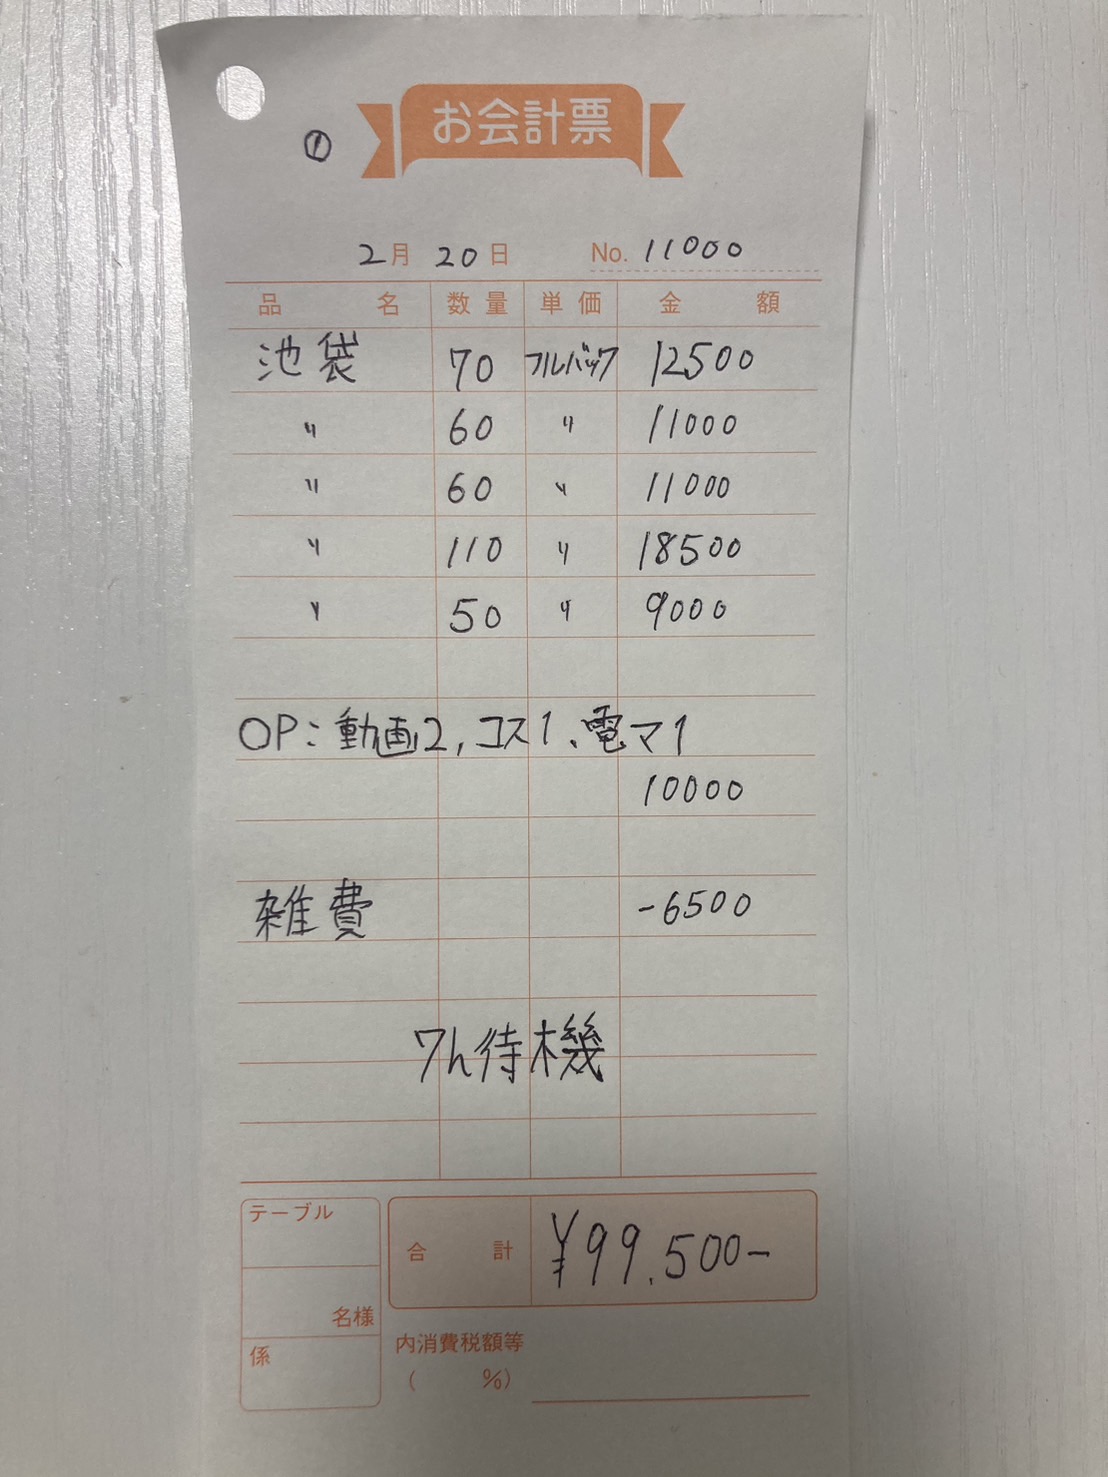 お会計票
①
2月 20日 No. 11000
品名 数量 単価 金額
池袋 70 フルバック 12500
〃 60 〃 11000
〃 60 〃 11000
〃 110 〃 18500
〃 50 〃 9000
OP:動画2,コス1、電マ1
10000
雑費 -6500
7h待機
テーブル
合計 ¥99.500-
名様
係
内消費税額等
( %)